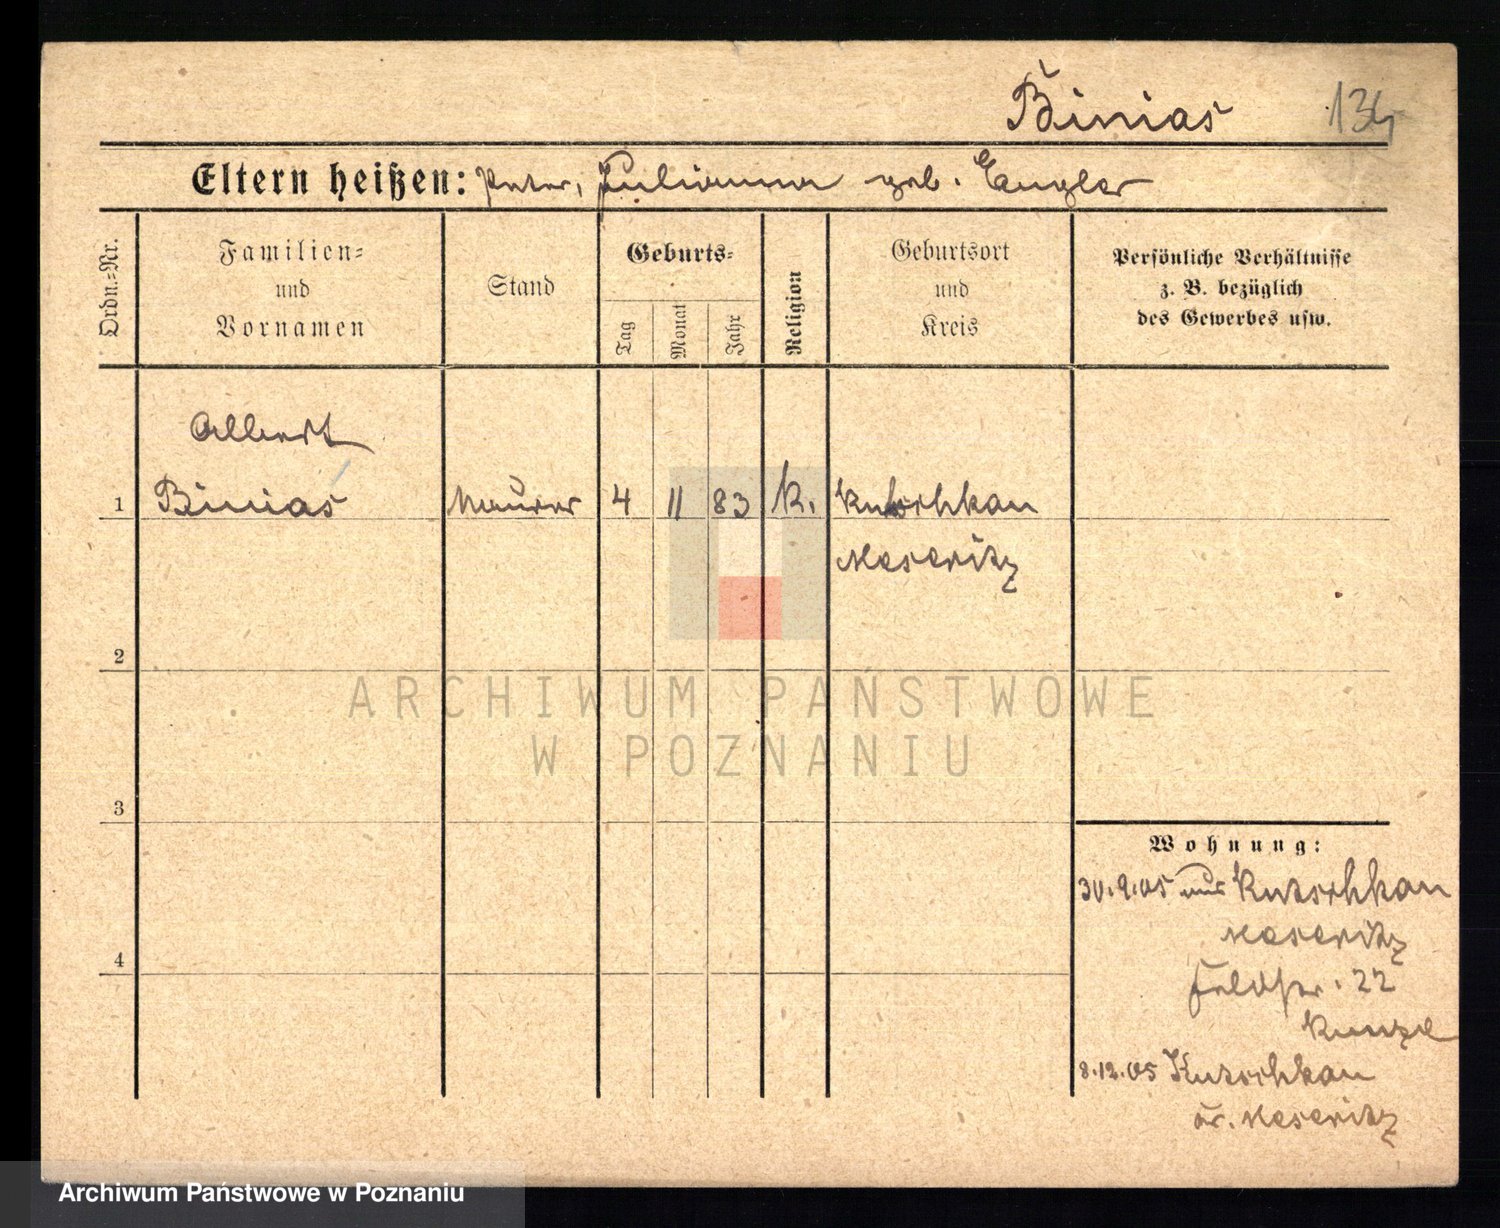 Binias 134
Eltern heißen: Peter, Julianna geb. Engler
Ordn.-Nr.
Familien-
und
Vornamen
Stand
Geburts-
Tag
Monat
Jahr
Religion
Geburtsort
und
Kreis
Persönliche Verhältnisse
z. B. bezüglich
des Gewerbes usw.
Albert
1 Binias Maurer 4 11 83 K. Kutschkau
Meseritz
2
3
4
ARCHIWUM PAŃSTWOWE
W POZNANIU
Wohnung:
30.9.05 aus Kutschkau
Meseritz
Feldstr. 22
Kunze
8.12.05 Kutschkau
Kr. Meseritz
Archiwum Państwowe w Poznaniu